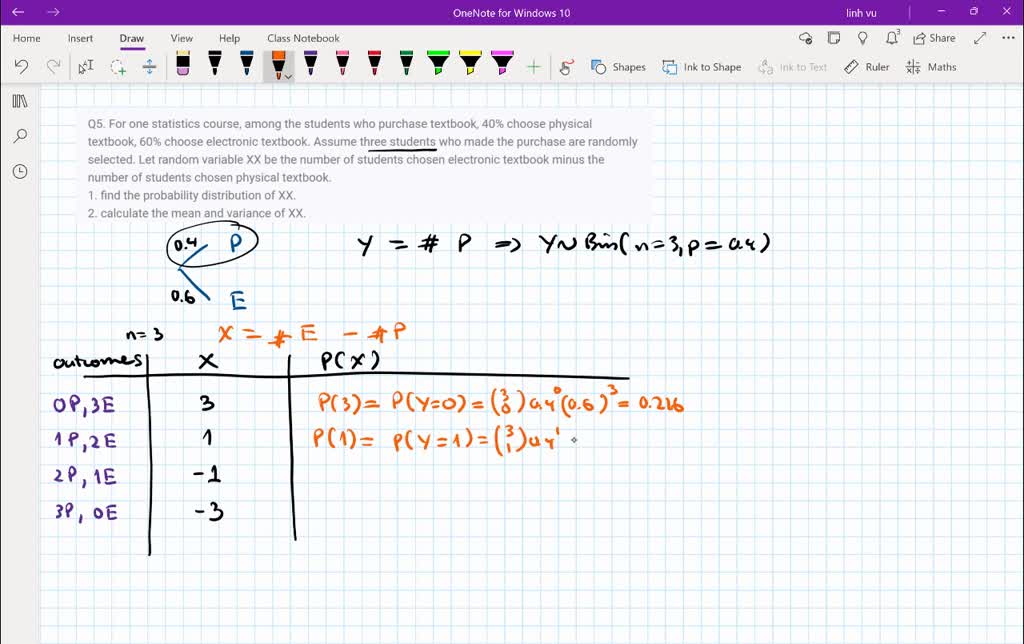 OneNote for Windows 10
linh vu
Home Insert Draw View Help Class Notebook
3
Share
Shapes Ink to Shape Ink to Text Ruler Maths
Q5. For one statistics course, among the students who purchase textbook, 40% choose physical
textbook, 60% choose electronic textbook. Assume three students who made the purchase are randomly
selected. Let random variable XX be the number of students chosen electronic textbook minus the
number of students chosen physical textbook.
1. find the probability distribution of XX.
2. calculate the mean and variance of XX.
0.4 P
Y = # P => Y~Bin(n=3, p=0.4)
0.6 E
n=3 X = #E - #P
outcomes X P(X)
0P, 3E 3 P(3) = P(Y=0) = (3 0) 0.4^0 (0.6)^3 = 0.216
1P, 2E 1 P(1) = P(Y=1) = (3 1) 0.4^1
2P, 1E -1
3P, 0E -3